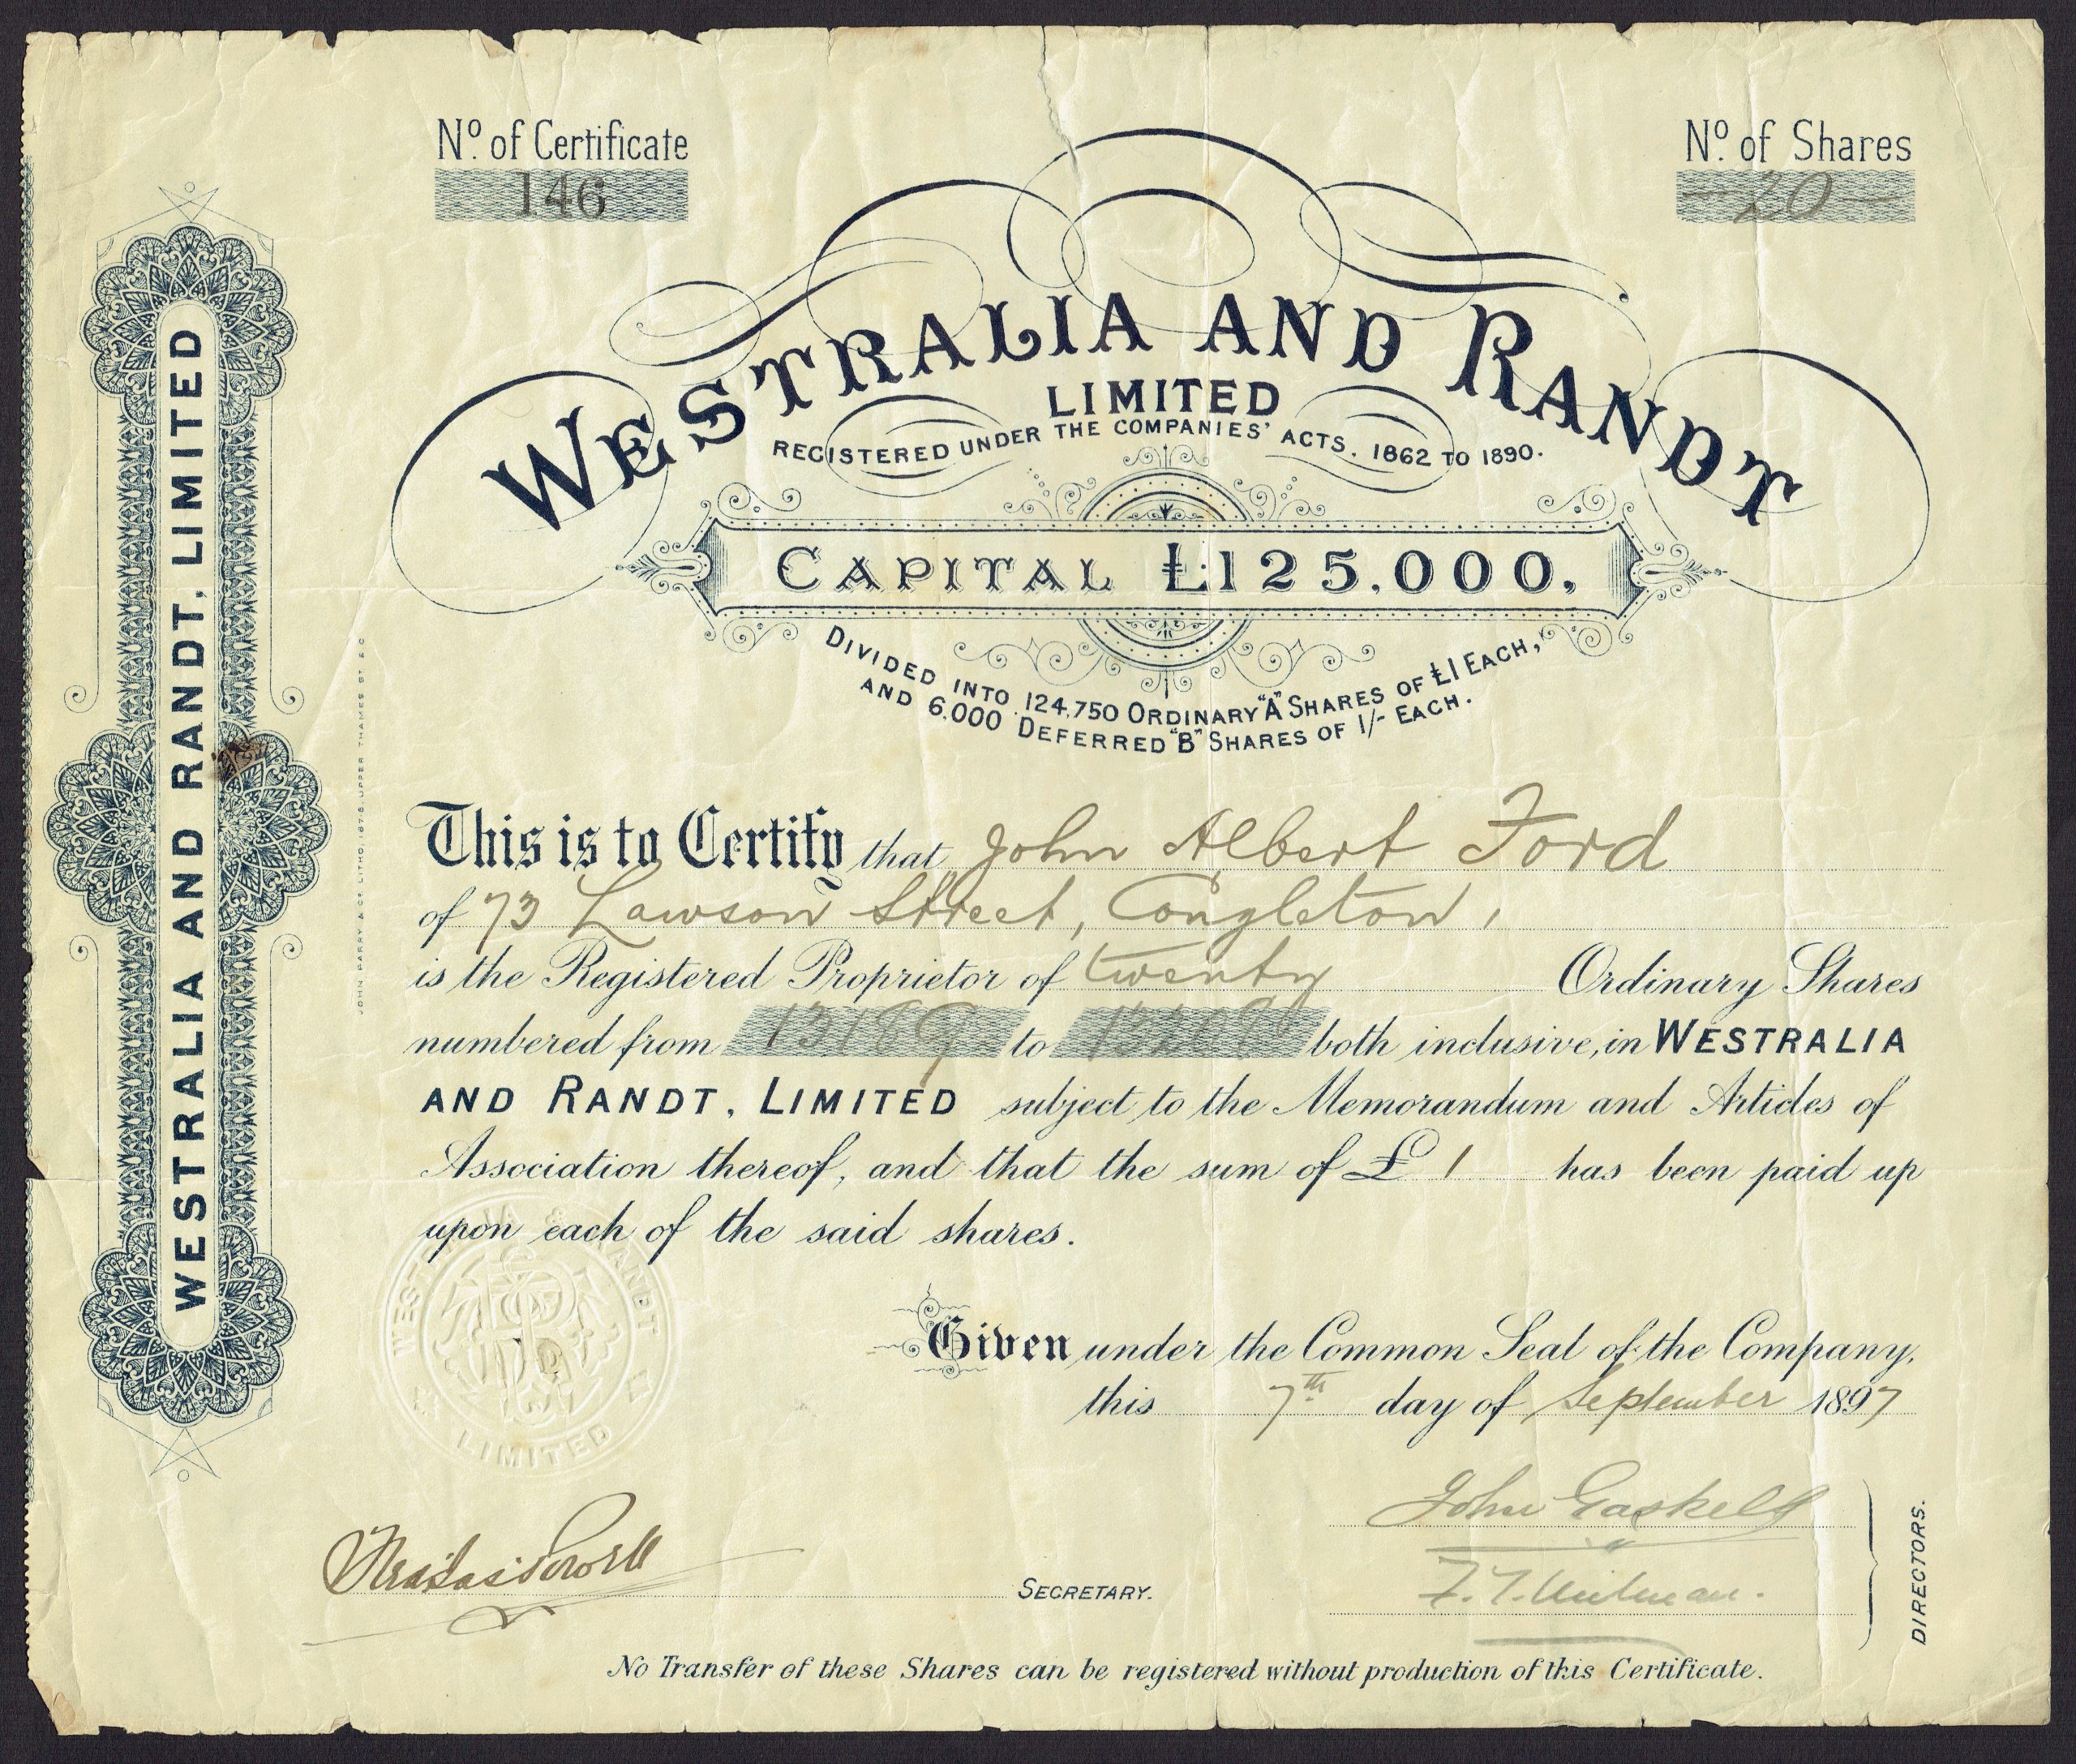 Nº. of Certificate
146
Nº. of Shares
20
WESTRALIA AND RANDT
LIMITED
REGISTERED UNDER THE COMPANIES' ACTS, 1862 TO 1890.
CAPITAL £125,000,
DIVIDED INTO 124,750 ORDINARY "A" SHARES OF £1 EACH,
AND 6,000 DEFERRED "B" SHARES OF 1/- EACH.
This is to Certify that John Albert Ford
of 73 Lawson Street, Congleton,
is the Registered Proprietor of twenty Ordinary Shares
numbered from 13189 to both inclusive, in WESTRALIA
AND RANDT, LIMITED subject to the Memorandum and Articles of
Association thereof, and that the sum of £ 1 has been paid up
upon each of the said shares.
Given under the Common Seal of the Company,
this 7th day of September 1897
John Gaskell
F. T.
SECRETARY.
DIRECTORS.
No Transfer of these Shares can be registered without production of this Certificate.
WESTRALIA AND RANDT, LIMITED
JOHN PARRY & CO. LITHO. UPPER THAMES ST. E.C.
WESTRALIA & RANDT
LIMITED